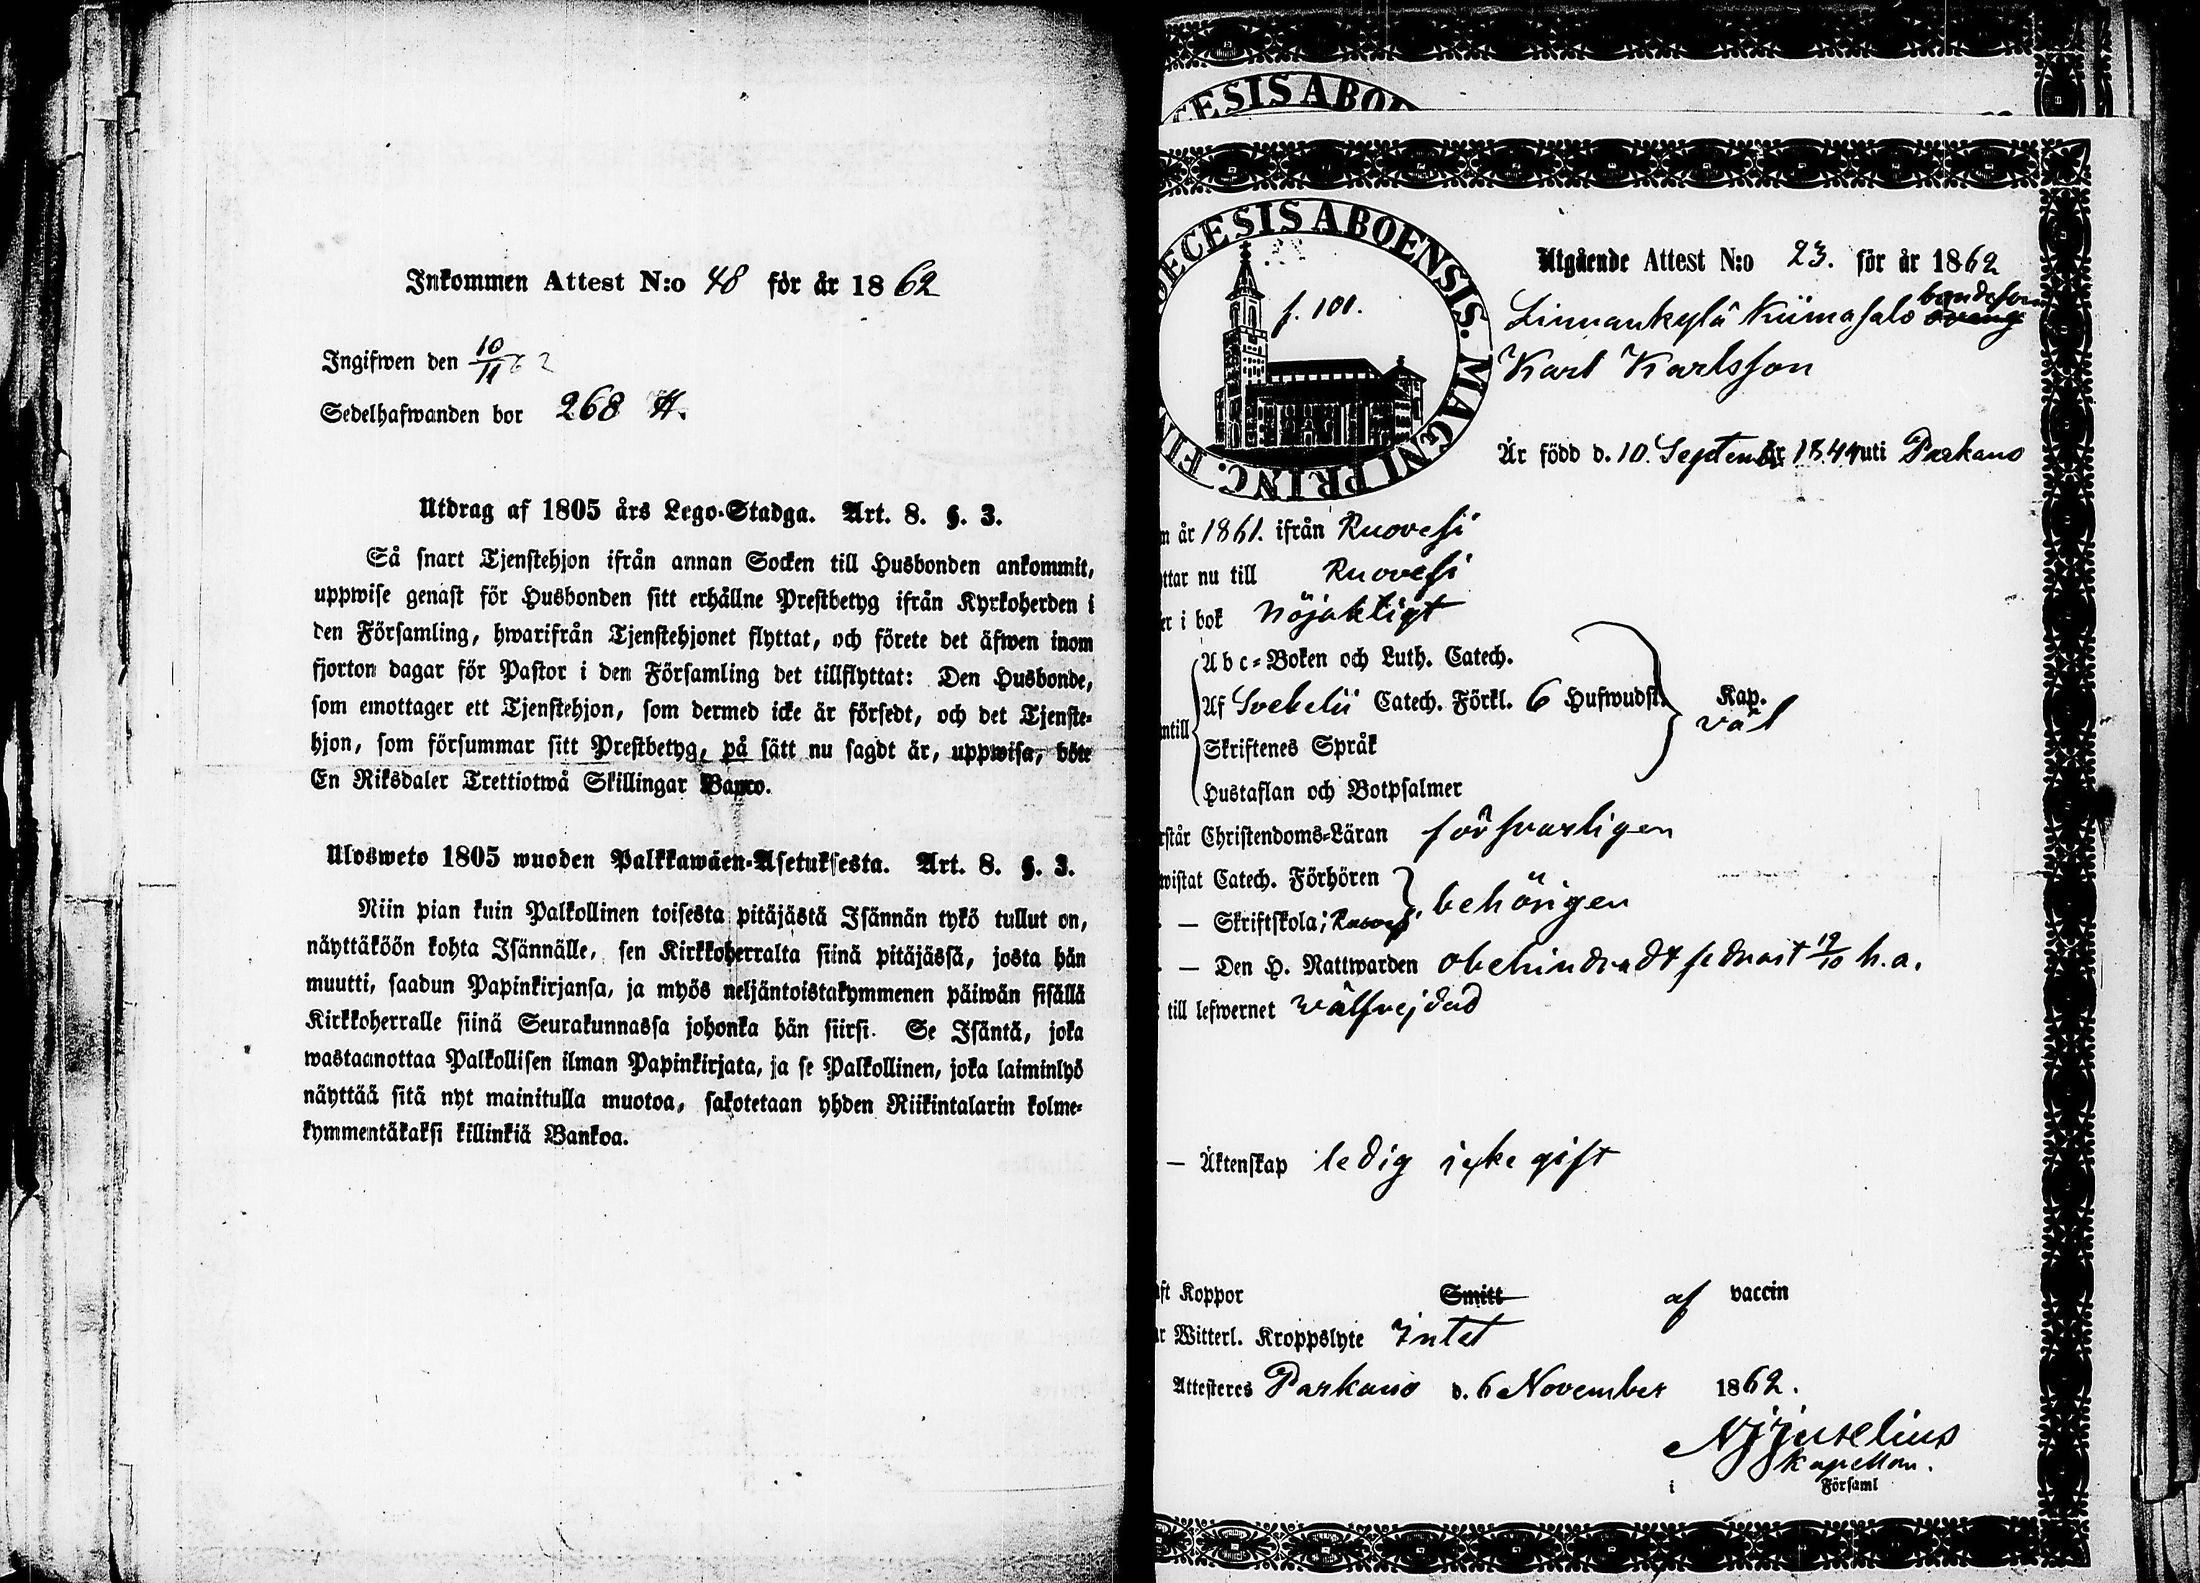 Inkommen Attest N:o 48 för år 1862
Ingifwen den 10/11 62
Sedelhafwanden bor 268 H.
Utdrag af 1805 års Lego-Stadga. Art. 8. §. 3.
Så snart Tjenstehjon ifrån annan Socken till Husbonden ankommit,
uppwise genast för Husbonden sitt erhållne Prestbetyg ifrån Kyrkoherden i
den Församling, hwarifrån Tjenstehjonet flyttat, och förete det äfwen inom
fjorton dagar för Pastor i den Församling det tillflyttat: Den Husbonde,
som emottager ett Tjenstehjon, som dermed icke är försedt, och det Tjenste-
hjon, som försummar sitt Prestbetyg, på sätt nu sagdt är, uppwisa, böte
En Riksdaler Trettiotwå Skillingar Banco.
Ulosweto 1805 wuoden Palkkawäen-Asetuksesta. Art. 8. §. 3.
Niin pian kuin Palkollinen toisesta pitäjästä Isännän tykö tullut on,
näyttäköön kohta Isännälle, sen Kirkkoherralta siinä pitäjässä, josta hän
muutti, saadun Papinkirjansa, ja myös neljäntoistakymmenen päiwän sisällä
Kirkkoherralle siinä Seurakunnassa johonka hän siirsi. Se Isäntä, joka
wastaanottaa Palkollisen ilman Papinkirjata, ja se Palkollinen, joka laiminlyö
näyttää sitä nyt mainitulla muotoa, sakotetaan yhden Riikintalarin kolme-
kymmentäkaksi killinkiä Bankoa.
CESIS ABOE
DECESIS ABOENSIS. MAGNI PRINC. FIN
f. 101.
Utgående Attest N:o 23. för år 1862
bondeson
Linnankylä Kiimasalo
Karl Karlsson
Är född d. 10. September 1844 uti Parkano
m år 1861. ifrån Ruovesi
ttar nu till Ruovesi
er i bok nöjaktigt
ntill
Abc-Boken och Luth. Catech.
Af Svebelii Catech. Förkl. 6 Hufwudst. Kap.
väl
Skriftenes Språk
Hustaflan och Botpsalmer
rstår Christendoms-Läran försvarligen
wistat Catech. Förhören
behörigen
— Skriftskola i Ruovesi
— Den H. Nattwarden obehindradt sednast 19/10 h.a.
till lefwernet välfrejdad
— Äktenskap ledig icke gift
ft Koppor Smitt af vaccin
r Witterl. Kroppslyte Intet
Attesteres Parkano d. 6 November 1862.
Kapellan.
i Församl